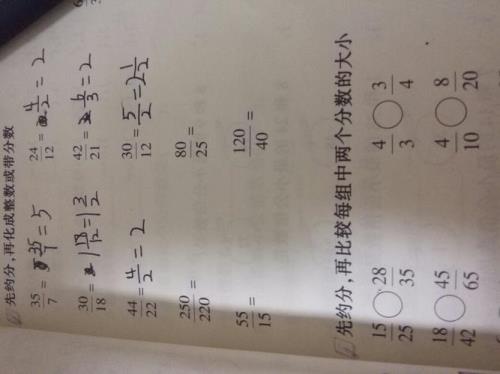 先约分，再化成整数或带分数
35/7 = 35/7 = 5 24/12 = 4/2 = 2
30/18 = 42/21 = 6/3 = 2
44/22 = 4/2 = 2 30/12 = 5/2 = 2 1/2
250/220 = 80/25 =
55/15 = 120/40 =
先约分，再比较每组中两个分数的大小
15/25 ○ 28/35 4/3 ○ 3/4
18/42 ○ 45/65 4/10 ○ 8/20